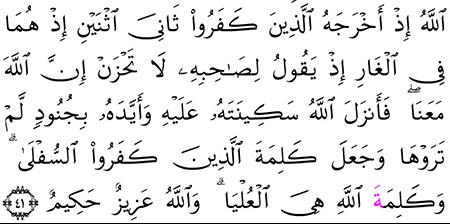 ٱللَّهُ إِذۡ أَخۡرَجَهُ ٱلَّذِينَ كَفَرُواْ ثَانِيَ ٱثۡنَيۡنِ إِذۡ هُمَا
فِي ٱلۡغَارِ إِذۡ يَقُولُ لِصَٰحِبِهِۦ لَا تَحۡزَنۡ إِنَّ ٱللَّهَ
مَعَنَاۖ فَأَنزَلَ ٱللَّهُ سَكِينَتَهُۥ عَلَيۡهِ وَأَيَّدَهُۥ بِجُنُودٖ لَّمۡ
تَرَوۡهَا وَجَعَلَ كَلِمَةَ ٱلَّذِينَ كَفَرُواْ ٱلسُّفۡلَىٰۗ
وَكَلِمَةَ ٱللَّهِ هِيَ ٱلۡعُلۡيَاۗ وَٱللَّهُ عَزِيزٌ حَكِيمٌ ٤١